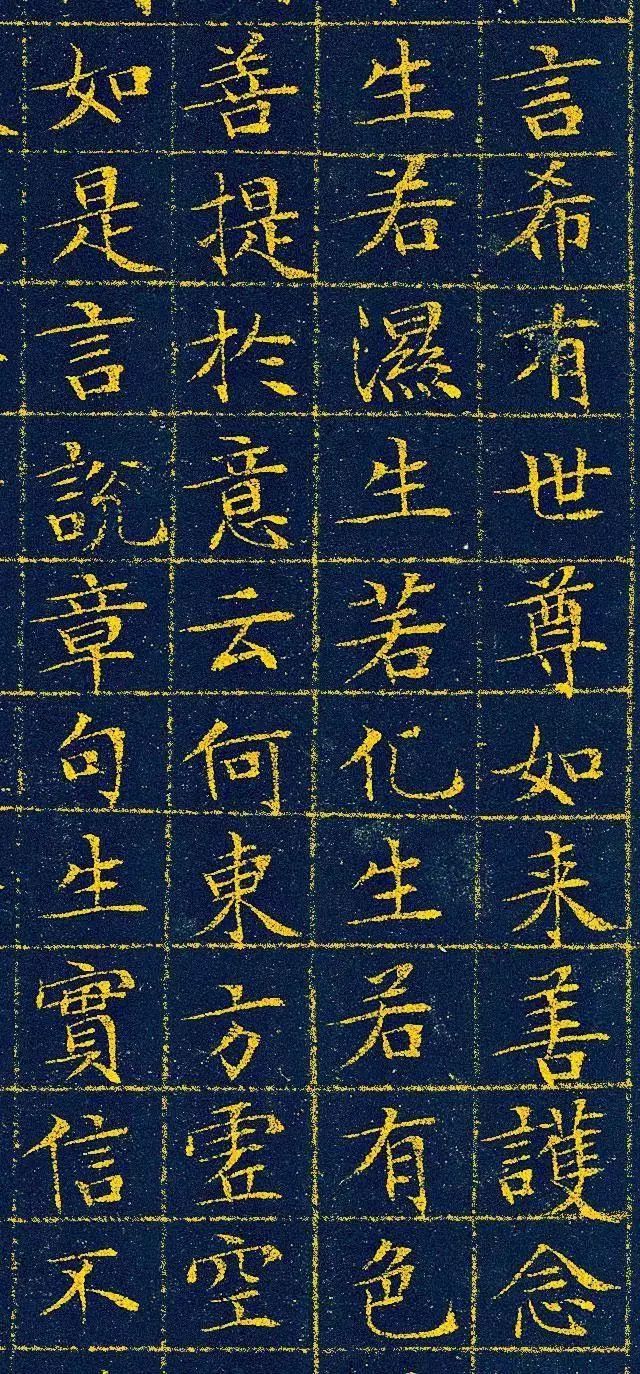 言希有世尊如来善護念
生若濕生若化生若有色
善提於意云何東方虛空
如是言說章句生實信不